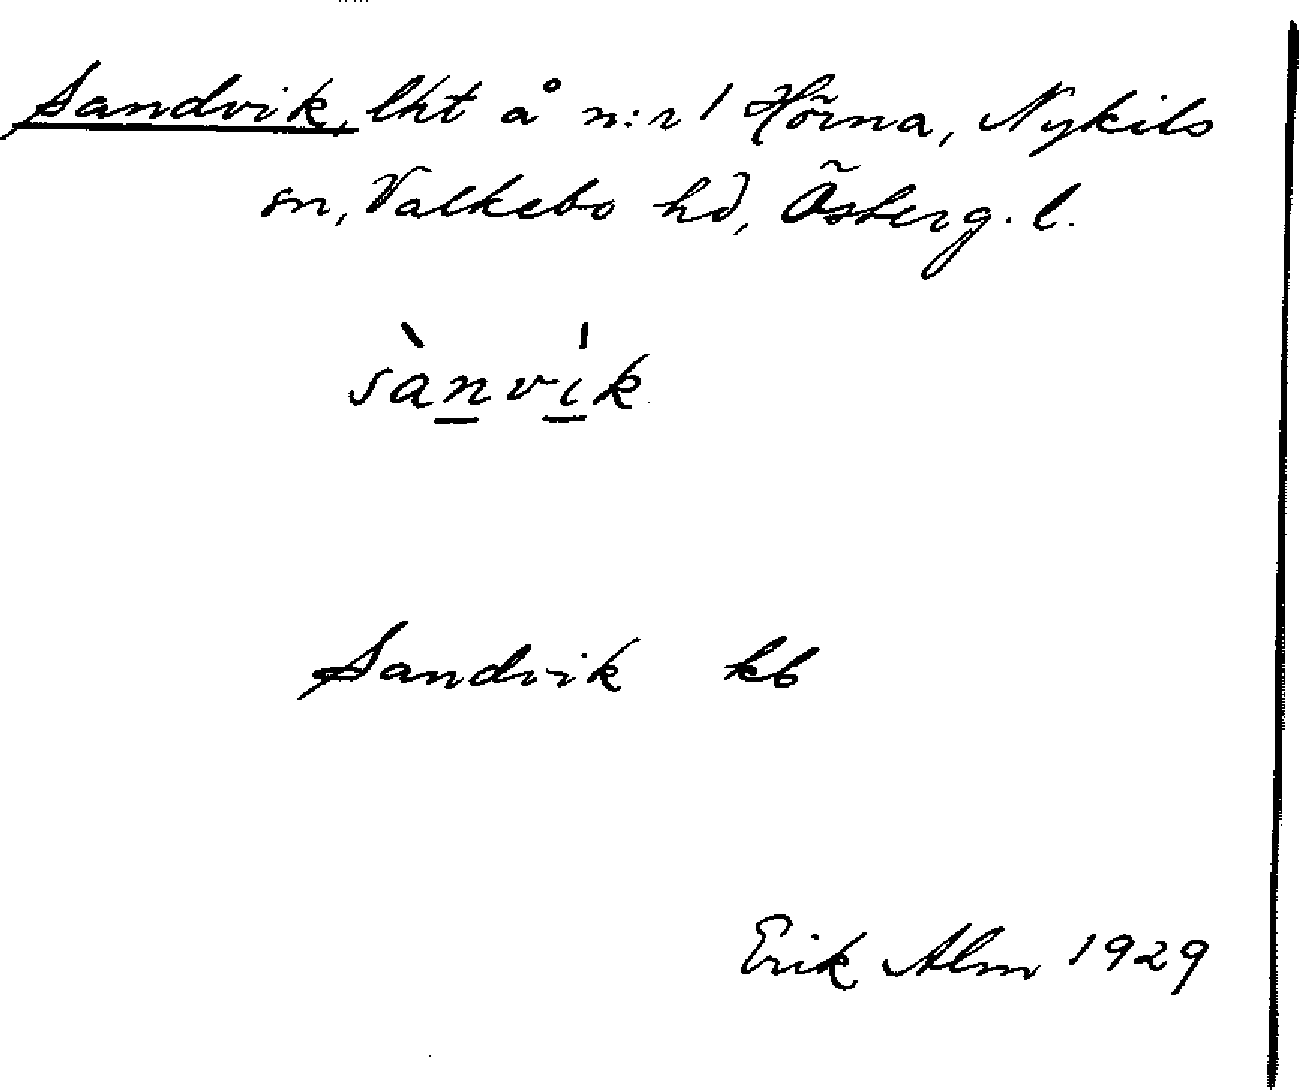 Sandvik, lht å n:r 1 Hörna, Nykils
sn, Valkebo hd, Österg. l.
sànvìk
Sandvik kb
Erik Alm 1929